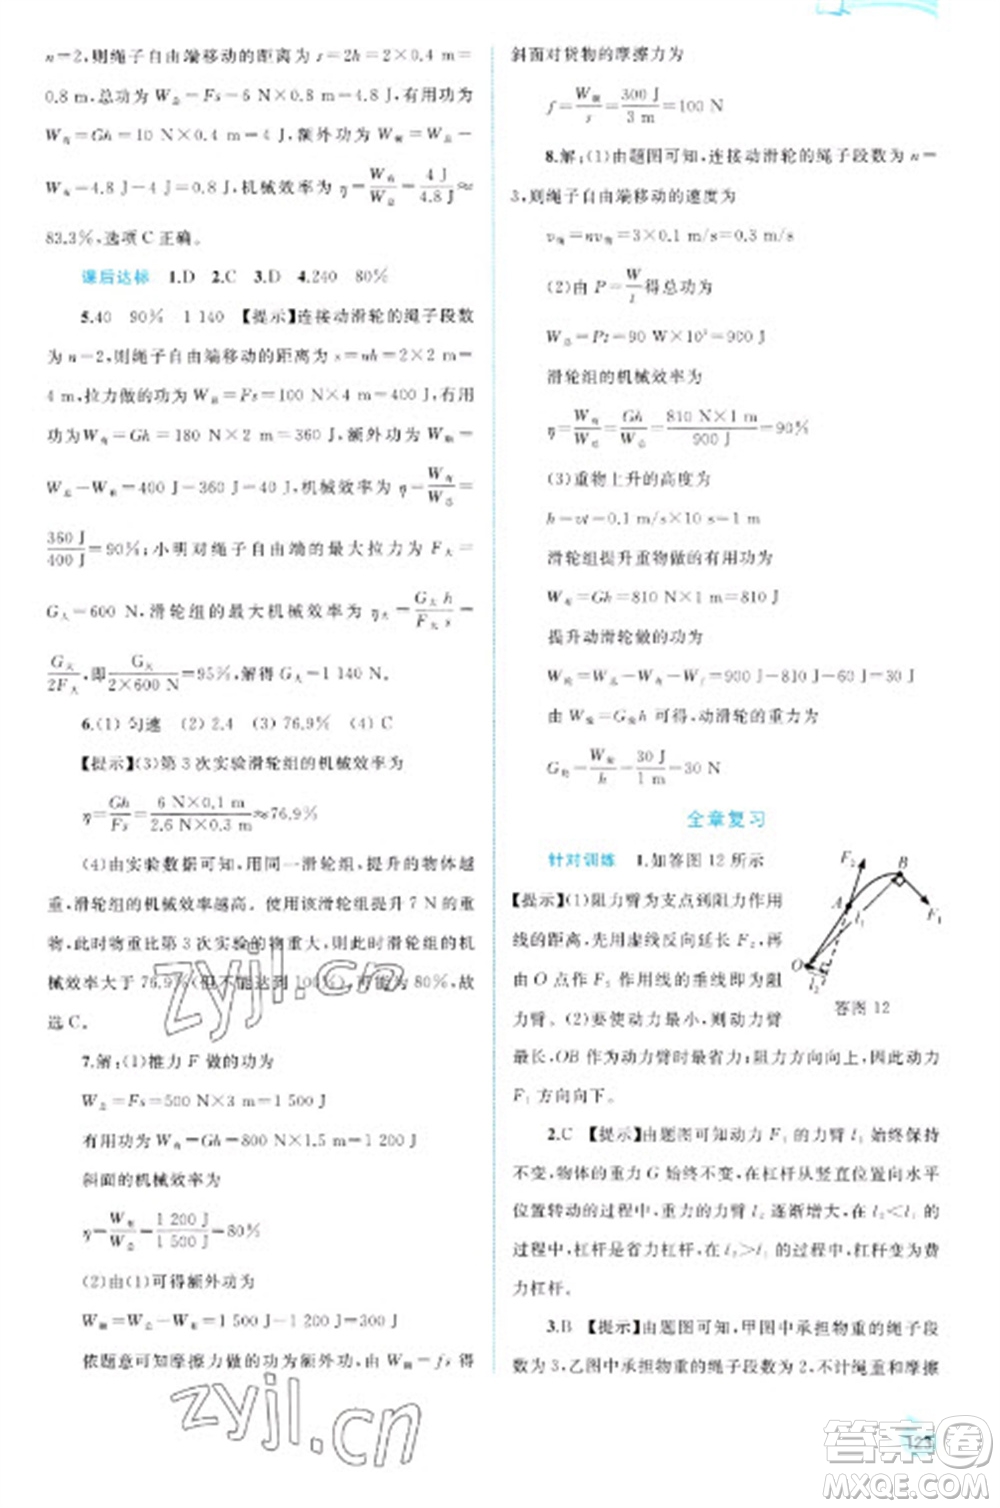 n=2,则绳子自由端移动的距离为 s=2h=2×0.4 m=
0.8 m,总功为 W总=Fs=6 N×0.8 m=4.8 J,有用功为
W有=Gh=10 N×0.4 m=4 J,额外功为 W额=W总-
W有=4.8 J-4 J=0.8 J,机械效率为 η=W有/W总=4 J/4.8 J≈
83.3%,选项 C 正确。
课后达标 1.D 2.C 3.D 4.240 80%
5.40 90% 1 140 【提示】连接动滑轮的绳子段数
为 n=2,则绳子自由端移动的距离为 s=nh=2×2 m=
4 m,拉力做的总功为 W总=Fs=100 N×4 m=400 J,有用
功为W有=Gh=180 N×2 m=360 J,额外功为 W额=
W总-W有=400 J-360 J=40 J,机械效率为 η=W有/W总=
360 J/400 J=90%;小明对绳子自由端的最大拉力为 F大=
G人=600 N,滑轮组的最大机械效率为 η大=G大h/F大s=
G大/2F大,即G大/2×600 N=95%,解得 G大=1 140 N。
6.(1) 匀速 (2) 2.4 (3) 76.9% (4) C
【提示】(3)第 3 次实验滑轮组的机械效率为
η=Gh/Fs=6 N×0.1 m/2.6 N×0.3 m≈76.9%
(4)由实验数据可知,用同一滑轮组,提升的物体越
重,滑轮组的机械效率越高。使用该滑轮组提升 7 N 的重
物,此时物重比第 3 次实验的物重大,则此时滑轮组的机
械效率将大于 76.9%(但不能达到 100%),可能为 80%,故
选 C。
7.解:(1)推力 F 做的功为
W总=Fs=500 N×3 m=1 500 J
有用功为 W有=Gh=800 N×1.5 m=1 200 J
斜面的机械效率为
η=W有/W总=1 200 J/1 500 J=80%
(2)由(1)可得额外功为
W额=W总-W有=1 500 J-1 200 J=300 J
依题意可知摩擦力做的功为额外功,由 W额=fs 得
斜面对货物的摩擦力为
f=W额/s=300 J/3 m=100 N
8.解:(1)由题图可知,连接动滑轮的绳子段数为 n=
3,则绳子自由端移动的速度为
v绳=nv物=3×0.1 m/s=0.3 m/s
(2)由 P=W/t得总功为
W总=Pt=90 W×10 s=900 J
滑轮组的机械效率为
η=W有/W总=Gh/W总=810 N×1 m/900 J=90%
(3)重物上升的高度为
h=vt=0.1 m/s×10 s=1 m
滑轮组提升重物做的有用功为
W有=Gh=810 N×1 m=810 J
提升动滑轮做的功为
由 W轮=G轮h 可得,动滑轮的重力为
G轮=W轮/h=30 J/1 m=30 N
全章复习
针对训练 1.如答图 12 所示
【提示】(1)阻力臂为支点到阻力作用
线的距离,先用虚线反向延长 F2,再
由 O 点作 F2 作用线的垂线即为阻
力臂。(2)要使动力最小,则动力臂
最长,OB 作为动力臂时最省力;阻力方向向上,因此动力
F1 方向向下。
F2 B
A F1
l1
O l2
答图 12
2.C 【提示】由题图可知动力 F1 的力臂 l1 始终保持
不变,物体的重力 G 始终不变,在杠杆从竖直位置向水平
位置转动的过程中,重力的力臂 l2 逐渐增大,在 l2<l1 的
过程中,杠杆是省力杠杆,在 l2>l1 的过程中,杠杆为费
力杠杆。
3.B 【提示】由题图可知,甲图中承担物重的绳子段
数为 3,乙图中承担物重的绳子段数为 2,不计绳重和摩擦
123
zyjl.cn
zyjl.cn
答案圈
MXQE.COM